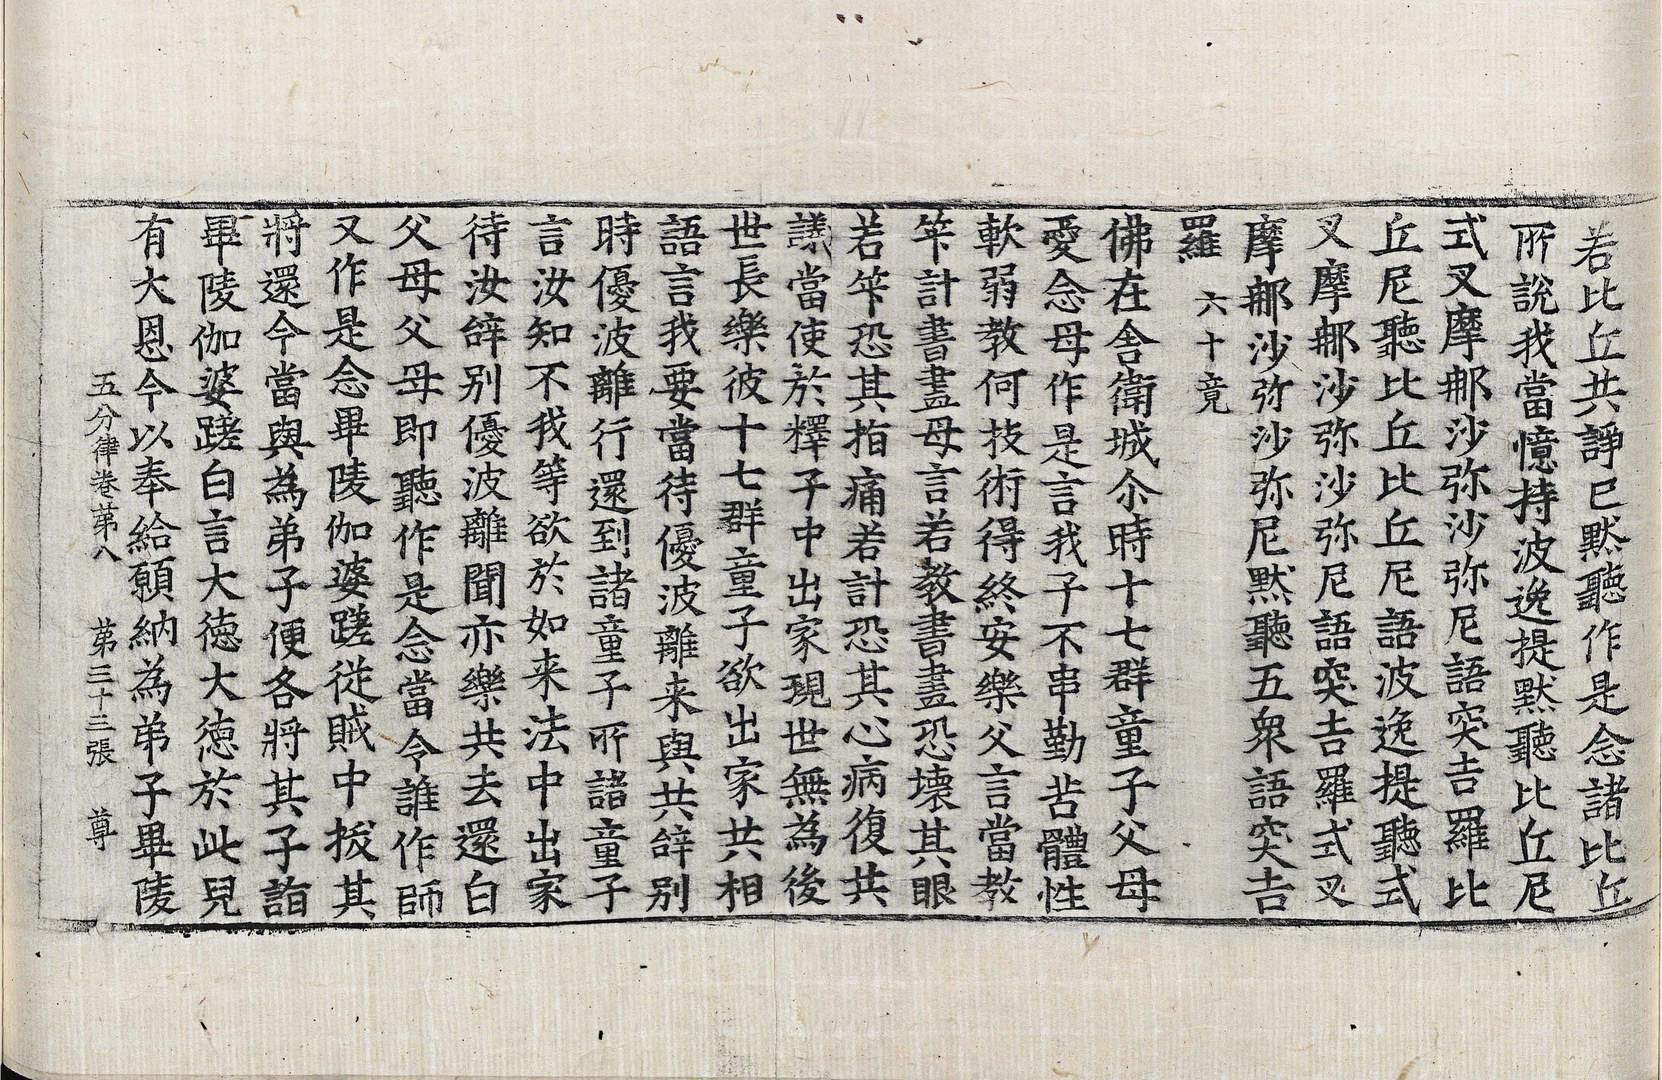 若比丘共諍已默聽作是念諸比丘
所說我當憶持波逸提默聽比丘尼
式叉摩那沙弥沙弥尼語突吉羅比
丘尼聽比丘比丘尼語波逸提聽式
叉摩那沙弥沙弥尼語突吉羅式叉
摩那沙弥沙弥尼默聽五衆語突吉
羅 六十竟
佛在舍衛城尒時十七群童子父母
愛念母作是言我子不串勤苦體性
軟弱教何技術得終安樂父言當教
筭計書畫母言若教書畫恐壞其眼
若筭恐其指痛若計恐其心病復共
議當使於釋子中出家現世無為後
世長樂彼十七群童子欲出家共相
語言我要當待優波離来與共辝別
時優波離行還到諸童子所諸童子
言汝知不我等欲於如来法中出家
待汝辝別優波離聞亦樂共去還白
父母父母即聽作是念當令誰作師
又作是念畢陵伽婆蹉從賊中拔其
將還今當與為弟子便各將其子詣
畢陵伽婆蹉白言大徳大徳於此兒
有大恩今以奉給願納為弟子畢陵
五分律卷第八 第三十三張 尊